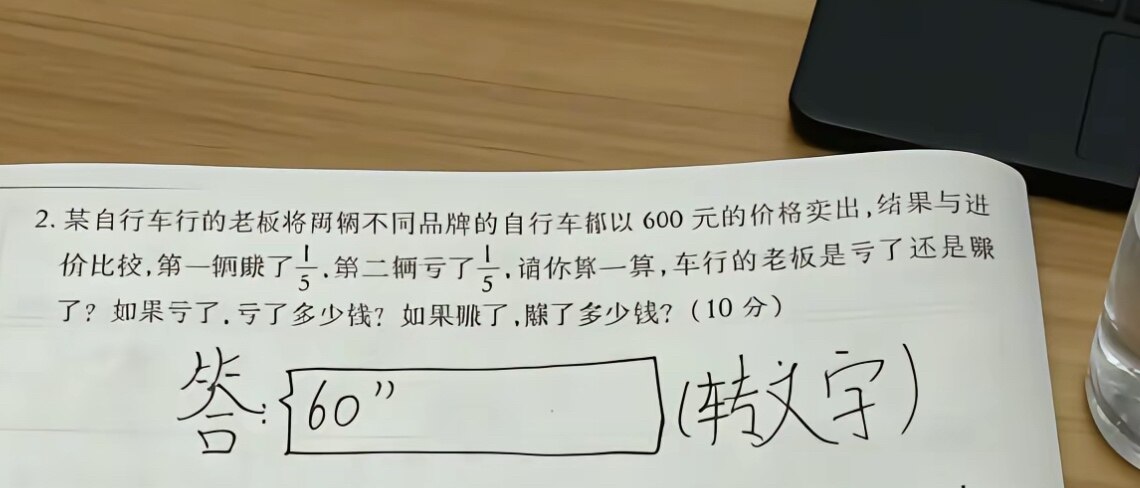 2. 某自行车行的老板将两辆不同品牌的自行车都以 600 元的价格卖出,结果与进
价比较,第一辆赚了1/5,第二辆亏了1/5,请你算一算,车行的老板是亏了还是赚
了? 如果亏了,亏了多少钱? 如果赚了,赚了多少钱? (10 分)
答: 60” (转文字)